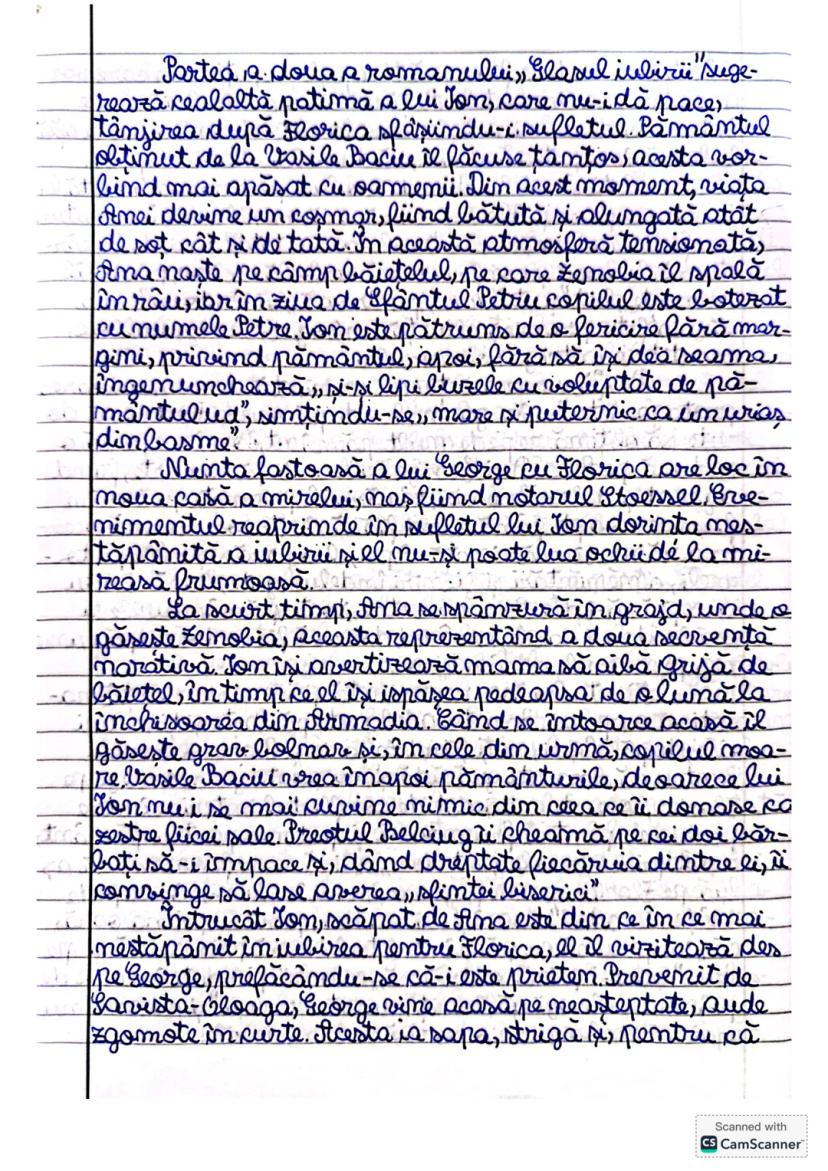 Partea a doua a romanului „Glasul iubirii" suge-
rează cealaltă patimă a lui Ion, care nu-i dă pace,
tânjirea după Florica sfâșiindu-i sufletul. Pământul
obținut de la Vasile Baciu îl făcuse țanțoș, acesta vor-
bind mai apăsat cu oamenii. Din acest moment, viața
Anei devine un coșmar, fiind bătută și alungată atât
de soț cât și de tată. În această atmosferă tensionată,
Ana naște pe câmp băiețelul, pe care Zenobia îl spală
în râu, iar în ziua de Sfântul Petru copilul este botezat
cu numele Petre. Ion este pătruns de o fericire fără mar-
gini, privind pământul, apoi, fără să își dea seama,
îngenunchează „și-și lipi buzele cu voluptate de pă-
mântul ud", simțindu-se „mare și puternic ca un uriaș
din basme".
Nunta fastoasă a lui George cu Florica are loc în
noua casă a mirelui, naș fiind notarul Stoessel. Eve-
nimentul reaprinde în sufletul lui Ion dorința nes-
tăpânită a iubirii și el nu-și poate lua ochii de la mi-
reasă frumoasă.
La scurt timp, Ana se spânzură în grajd, unde o
găsește Zenobia, aceasta reprezentând a două secvență
narativă. Ion își avertizează mama să aibă grijă de
băiețel, în timp ce el își ispășea pedeapsa de o lună la
închisoarea din Armadia. Când se întoarce acasă îl
găsește grav bolnav și, în cele din urmă, copilul moa-
re. Vasile Baciu vrea înapoi pământurile, deoarece lui
Ion nu i se mai cuvine nimic din ceea ce îi donase ca
zestre fiicei sale. Preotul Belciug îi cheamă pe cei doi băr-
bați să-i împace și, dând dreptate fiecăruia dintre ei, îi
convinge să lase averea „sfintei biserici".
Întrucât Ion, scăpat de Ana este din ce în ce mai
nestăpânit în iubirea pentru Florica, el îl vizitează des
pe George, prefăcându-se că-i este prieten. Prevenit de
Savista-Oloaga, George vine acasă pe neașteptate, aude
zgomote în curte. Acesta ia sapa, strigă și, pentru că
Scanned with
CS CamScanner